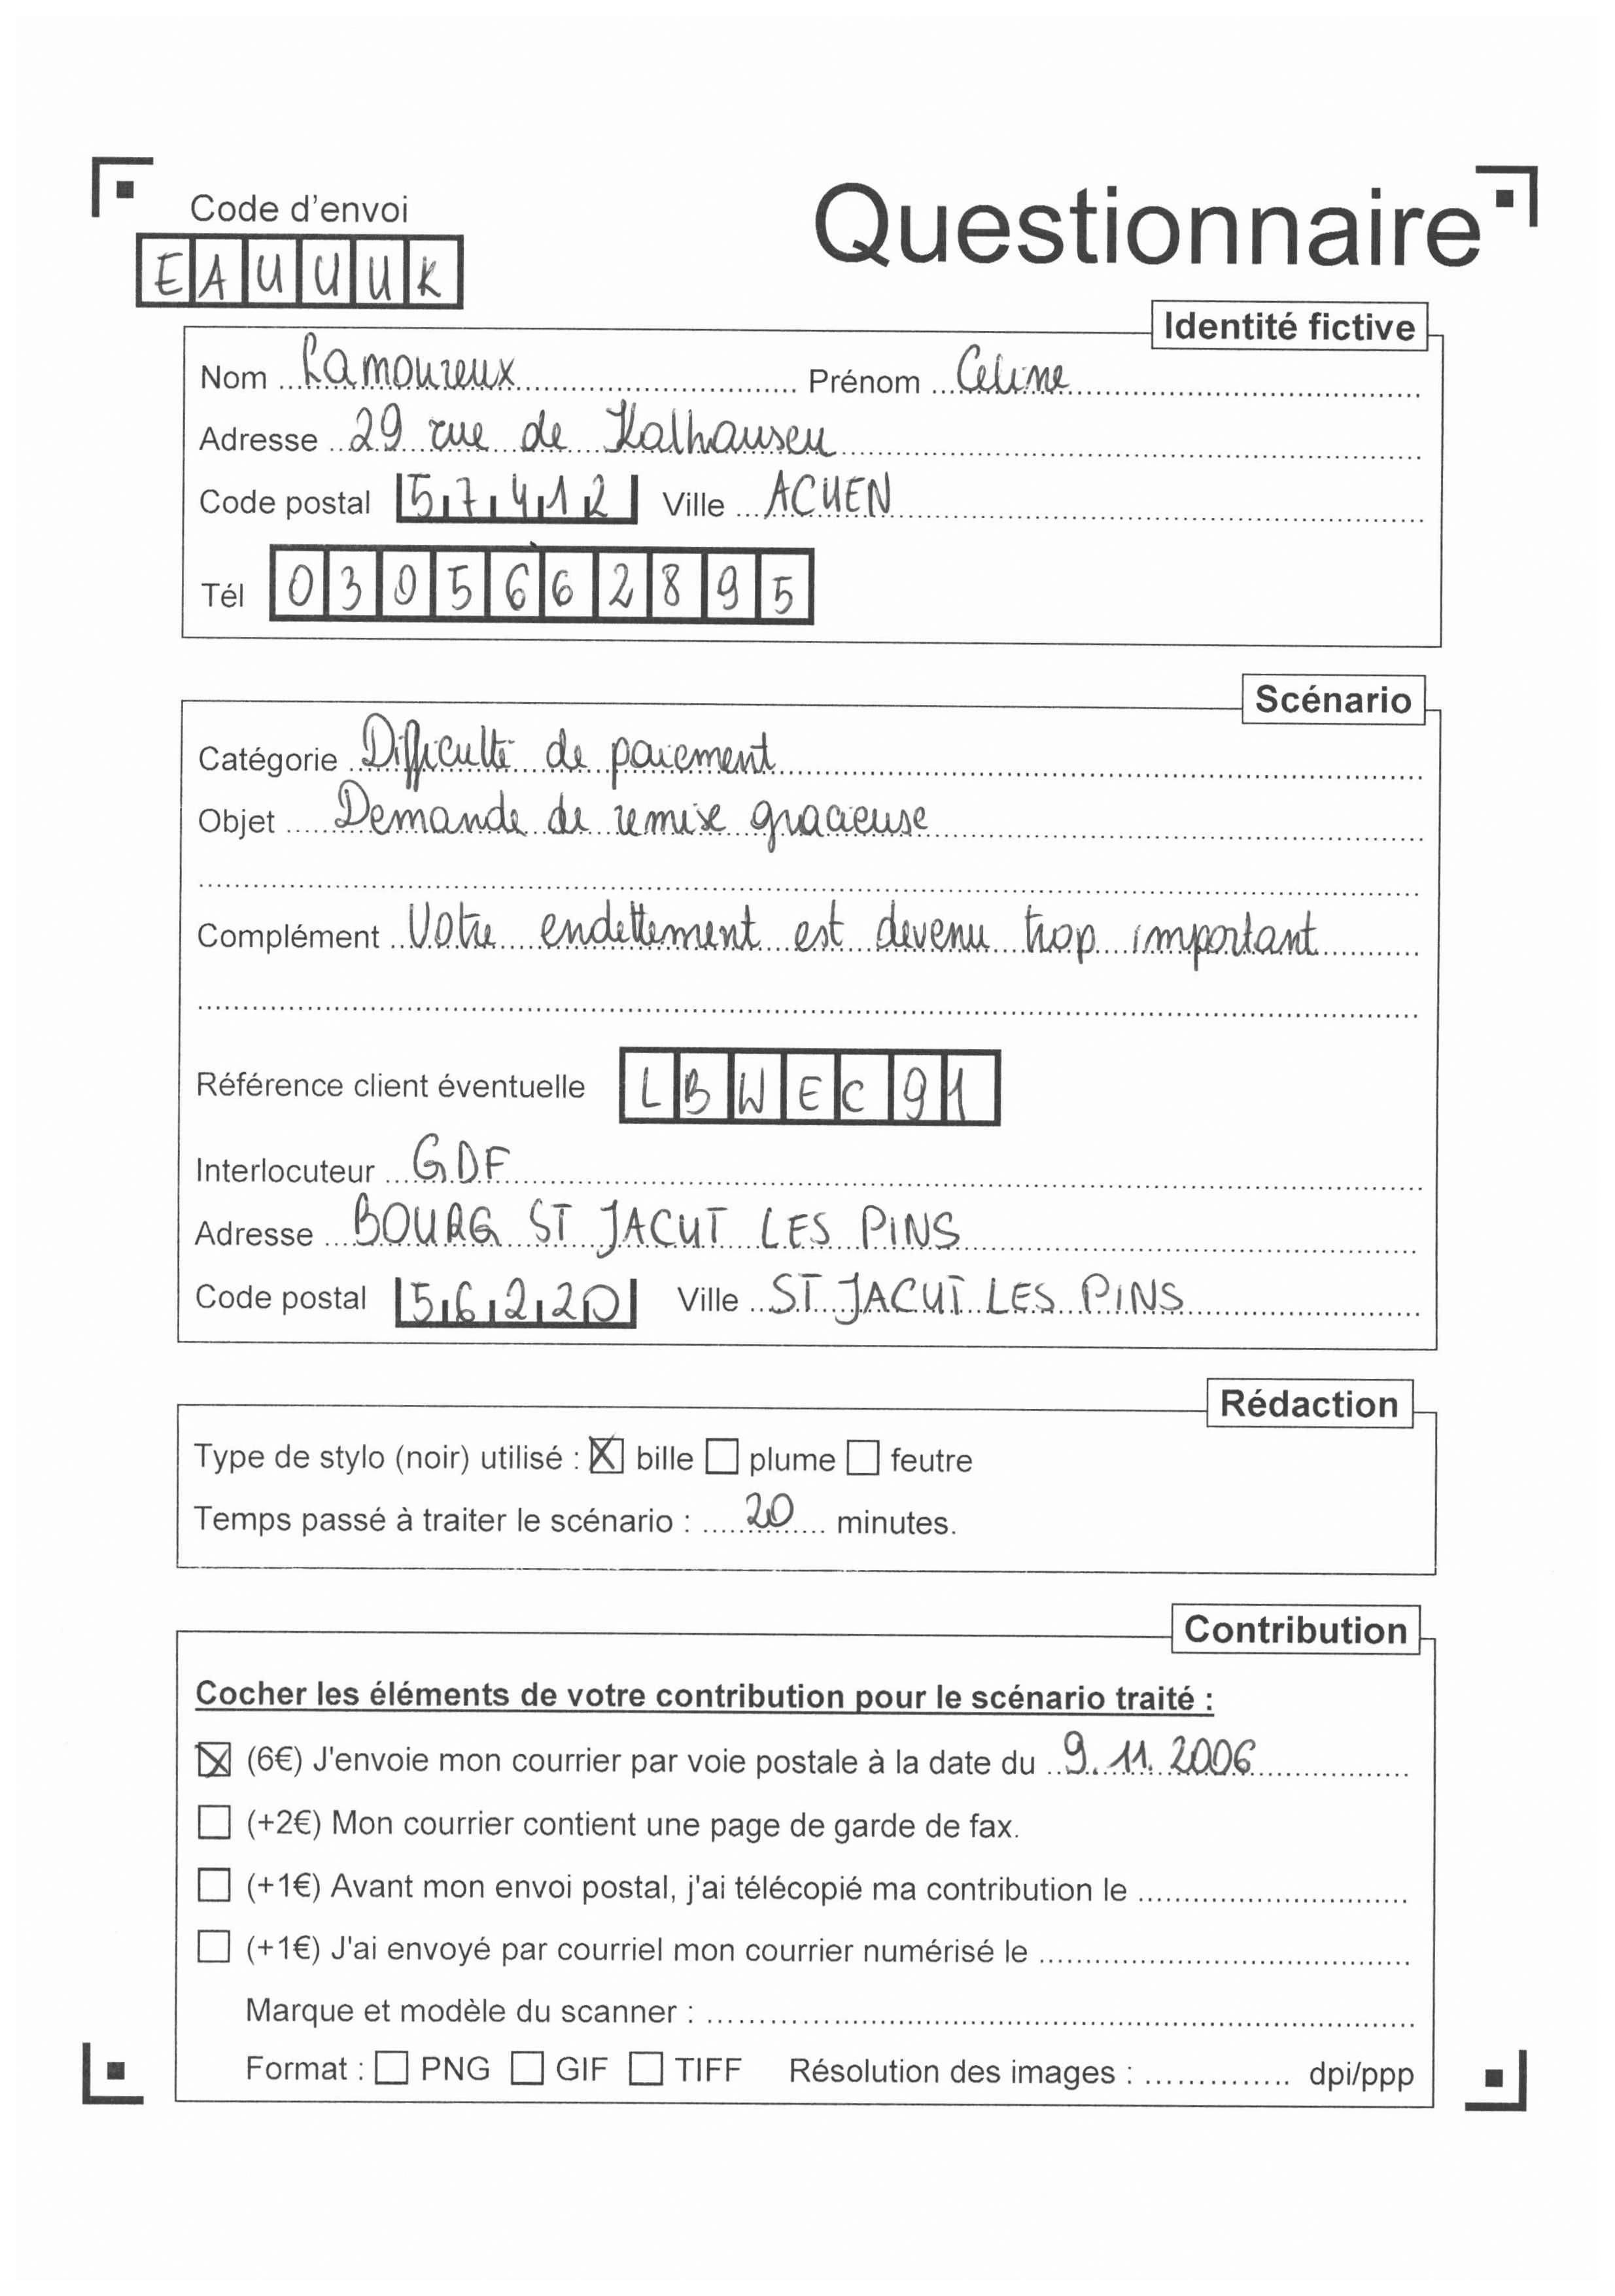 Code d'envoi
Questionnaire
EAUUUK
Identité fictive
Nom Lamoureux Prénom Celine
Adresse 29 rue de Kalhausen
Code postal 57412 Ville ACHEN
Tél 0305662895
Scénario
Catégorie Difficulté de paiement
Objet Demande de remise gracieuse
Complément Votre endettement est devenu trop important
Référence client éventuelle LBWEC91
Interlocuteur GDF
Adresse BOURG ST JACUT LES PINS
Code postal 56220 Ville ST JACUT LES PINS
Rédaction
Type de stylo (noir) utilisé : ☒ bille ☐ plume ☐ feutre
Temps passé à traiter le scénario : 20 minutes.
Contribution
Cocher les éléments de votre contribution pour le scénario traité :
☒ (6€) J'envoie mon courrier par voie postale à la date du 9.11.2006
☐ (+2€) Mon courrier contient une page de garde de fax.
☐ (+1€) Avant mon envoi postal, j'ai télécopié ma contribution le
☐ (+1€) J'ai envoyé par courriel mon courrier numérisé le
Marque et modèle du scanner :
Format : ☐ PNG ☐ GIF ☐ TIFF Résolution des images : dpi/ppp